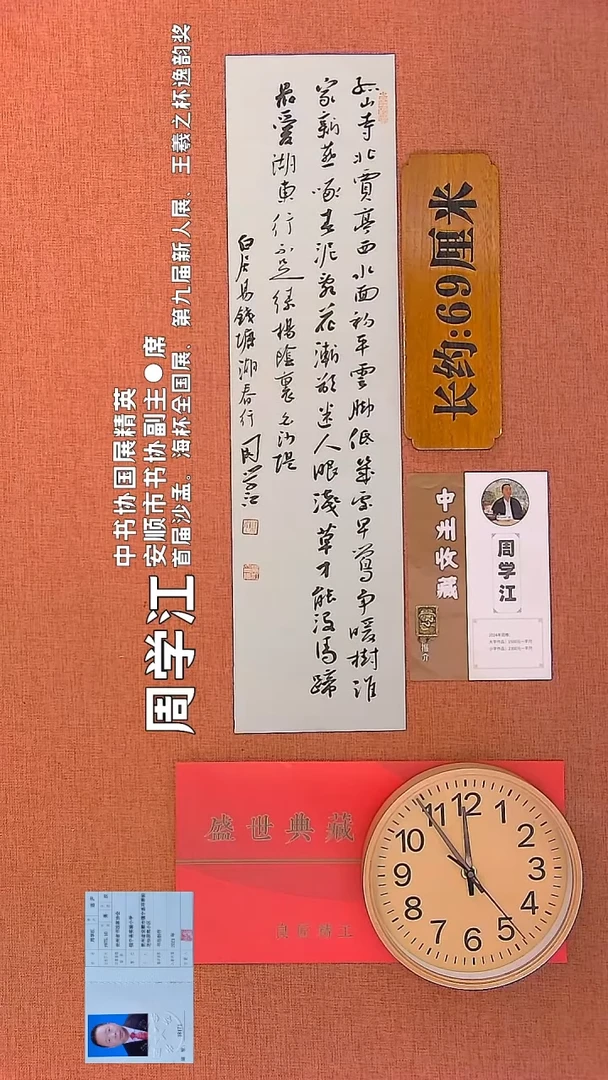 周学江
中书协国展精英
安顺市书协副主●席
首届沙孟。海杯全国展、第九届新人展、王羲之杯逸韵奖
孤山寺北賈亭西水面初平雲脚低幾處早鶯爭暖樹誰
家新燕啄春泥亂花漸欲迷人眼淺草才能没馬蹄
最愛湖東行不足綠楊陰裏白沙堤
白居易錢塘湖春行 周学江
长约:69厘米
中州收藏
简介
周学江
盛世典藏
12
1
2
3
4
5
6
7
8
9
10
11